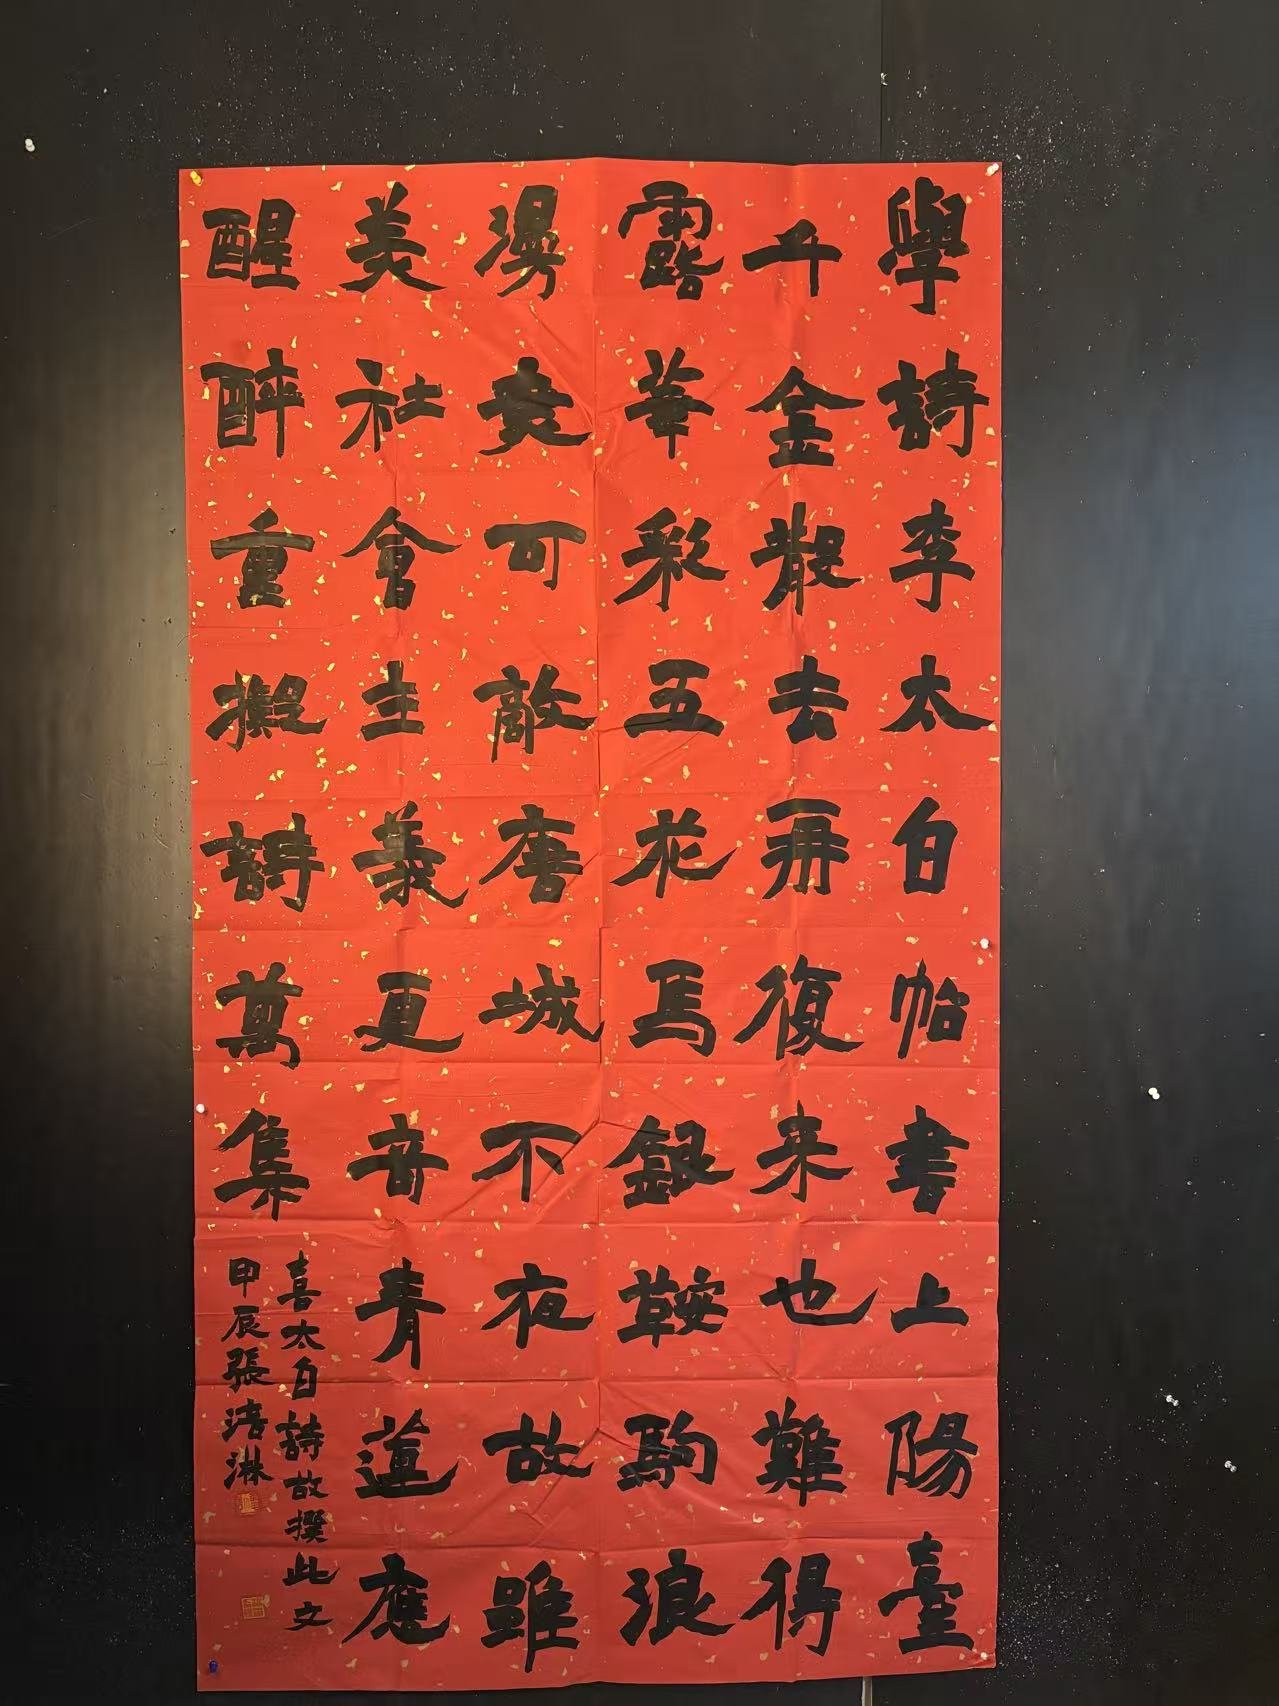 學詩李太白帖書上陽臺
千金散去再復来也難得
露華彩五花馬銀鞍駒浪
漫可敵唐城不夜故雖
美社會主義更青蓮應
醒醉重擬詩萬集
喜太白詩故撰此文
甲辰張淋